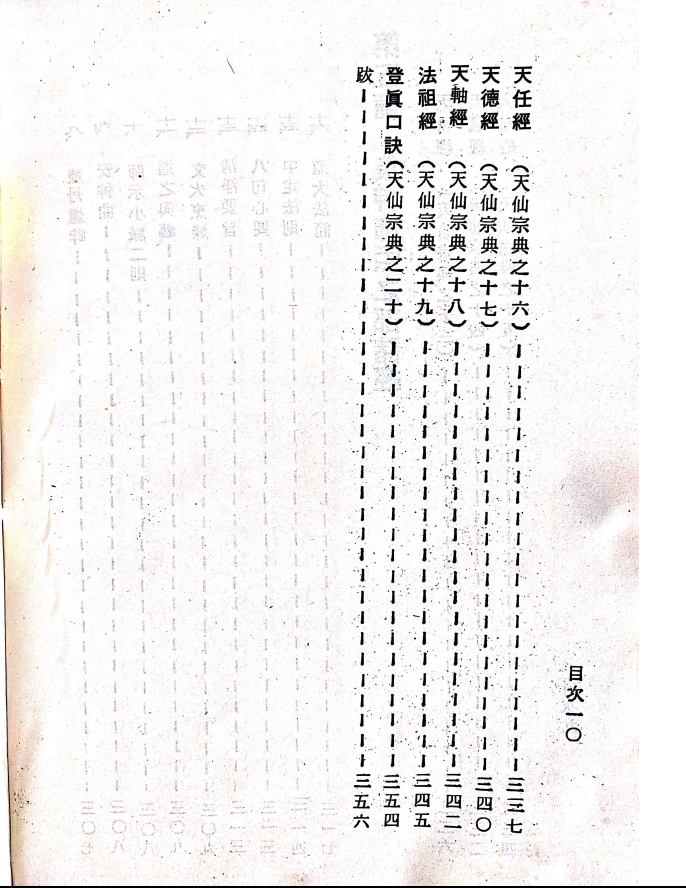 目次一〇
天任經(天仙宗典之十六)三三七
天德經(天仙宗典之十七)三四〇
天軸經(天仙宗典之十八)三四二
法祖經(天仙宗典之十九)三四五
登眞口訣(天仙宗典之二十)三五四
跋三五六